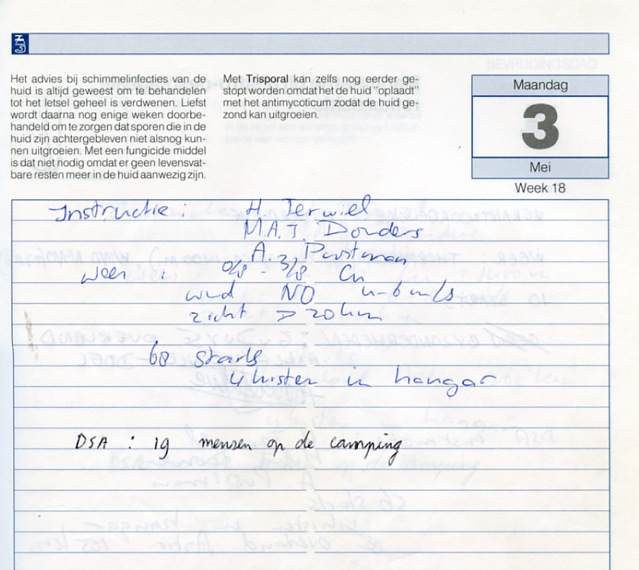 Het advies bij schimmelinfecties van de
huid is altijd geweest om te behandelen
tot het letsel geheel is verdwenen. Liefst
wordt daarna nog enige weken doorbe-
handeld om te zorgen dat sporen die in de
huid zijn achtergebleven niet alsnog kun-
nen uitgroeien. Met een fungicide middel
is dat niet nodig omdat er geen levensvat-
bare resten meer in de huid aanwezig zijn.
Met Trisporal kan zelfs nog eerder ge-
stopt worden omdat het de huid "oplaadt"
met het antimycoticum zodat de huid ge-
zond kan uitgroeien.
Maandag
3
Mei
Week 18
Instructie : H. Terwiel
M.A.T. Donders
A.
weer : 0/8 - 3/8 Cu
wind NO 4-6 m/s
zicht > 20 km
68 starts
4 kisten in hangar
DSA : 19 mensen op de camping